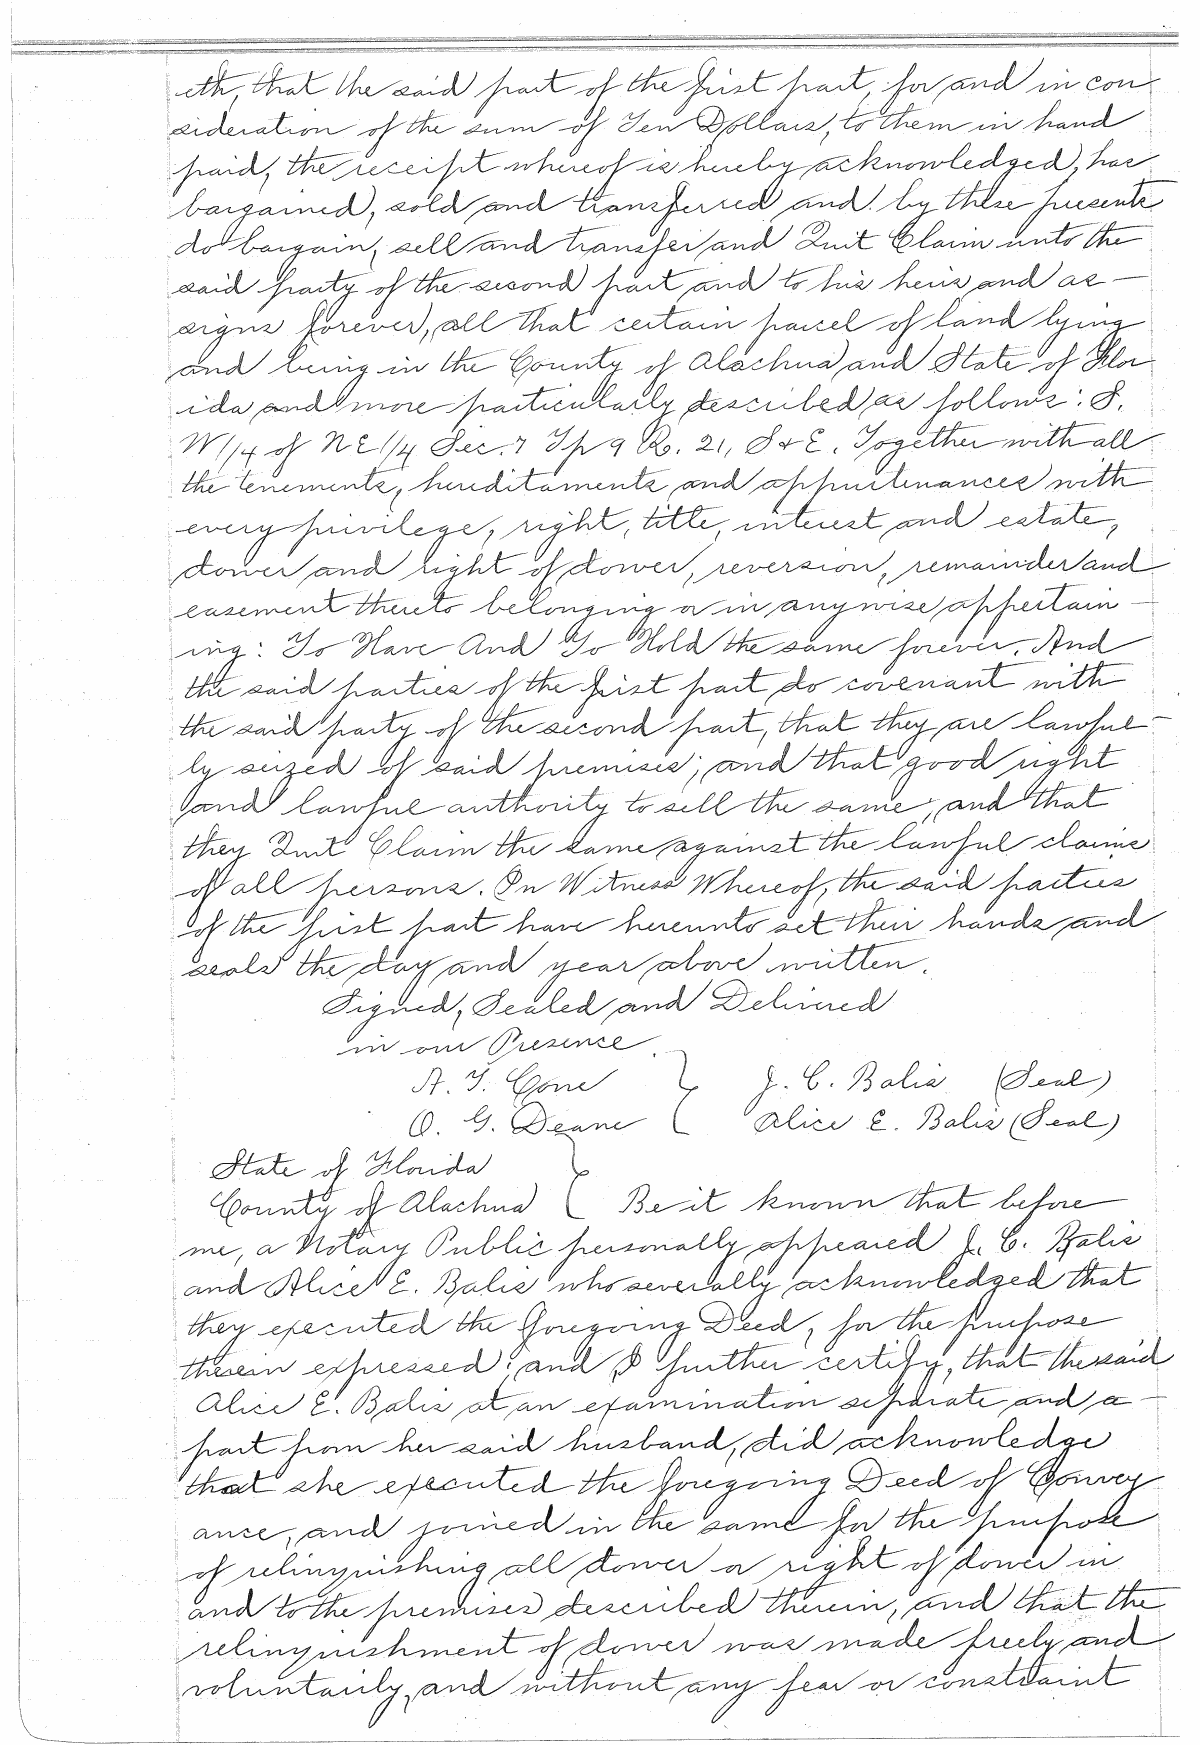 eth, that the said part of the first part, for and in con
sideration of the sum of Ten Dollars, to them in hand
paid, the receipt whereof is hereby acknowledged, has
bargained, sold and transferred and by these presents
do bargain, sell and transfer and Quit Claim unto the
said party of the second part and to his heirs and as-
signs forever, all that certain parcel of land lying
and being in the County of Alachua and State of Flor
ida and more particularly described as follows: S.
W 1/4 of N E 1/4 Sec. 7 Tp 9 R. 21, S & E. Together with all
the tenements, hereditaments and appurtenances with
every privilege, right, title, interest and estate,
dower and right of dower, reversion, remainder and
easement thereto belonging or in anywise appertain-
ing: To Have And To Hold the same forever. And
the said parties of the first part do covenant with
the said party of the second part, that they are lawful-
ly seized of said premises; and that good right
and lawful authority to sell the same, and that
they Quit Claim the same against the lawful claims
of all persons. In Witness Whereof, the said parties
of the first part have hereunto set their hands and
seals the day and year above written.
Signed, Sealed and Delivered
in our Presence.
A. T. Cone } J. C. Balis (Seal)
O. G. Deane Alice E. Balis (Seal)
State of Florida
County of Alachua } Be it known that before
me, a Notary Public personally appeared J. C. Balis
and Alice E. Balis who severally acknowledged that
they executed the foregoing Deed, for the purpose
therein expressed; and I further certify, that the said
Alice E. Balis at an examination separate and a-
part from her said husband, did acknowledge
that she executed the foregoing Deed of Convey
ance, and joined in the same for the purpose
of relinquishing all dower or right of dower in
and to the premises described therein, and that the
relinquishment of dower was made freely and
voluntarily, and without any fear or constraint